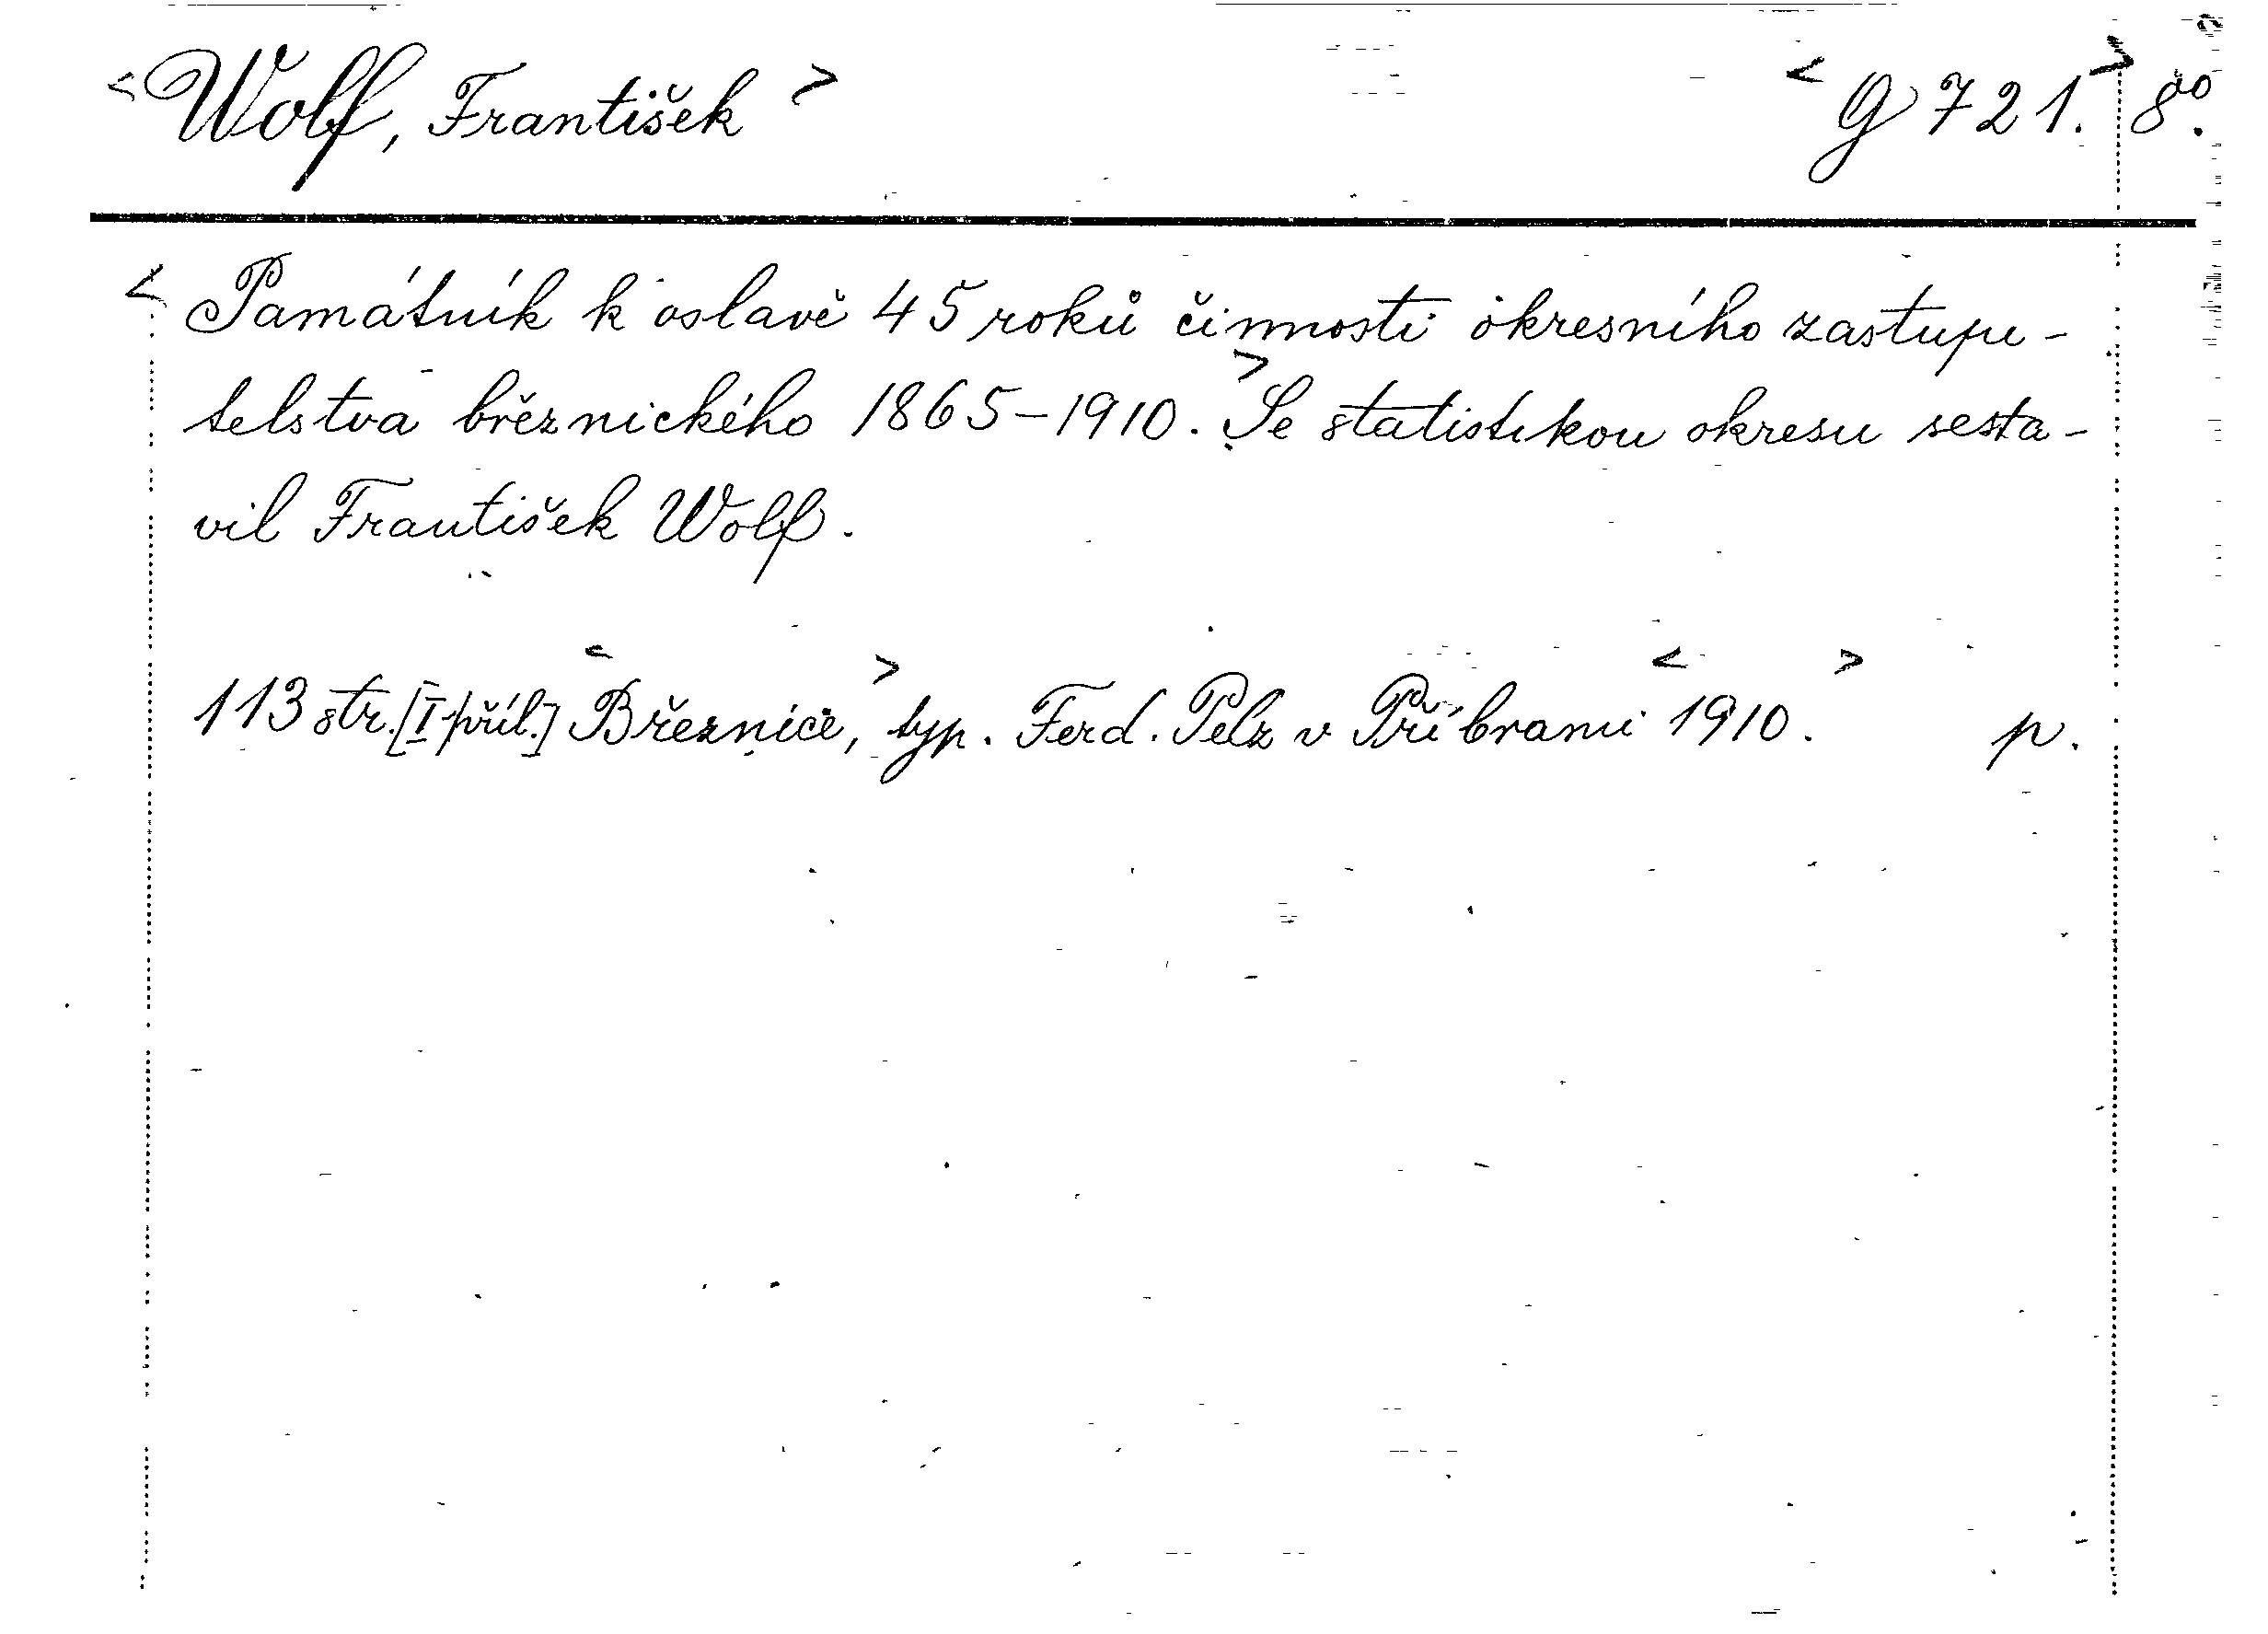 <Wolf, František> <G 721.> 8°.
<Památník k oslavě 45 roků činnosti okresního zastupi-
telstva březnického 1865-1910.> Se statistikou okresu sesta-
vil František Wolf.
113 str. [I příl.] <Březnice,> typ. Ferd. Pelz v Příbrami <1910.> p.